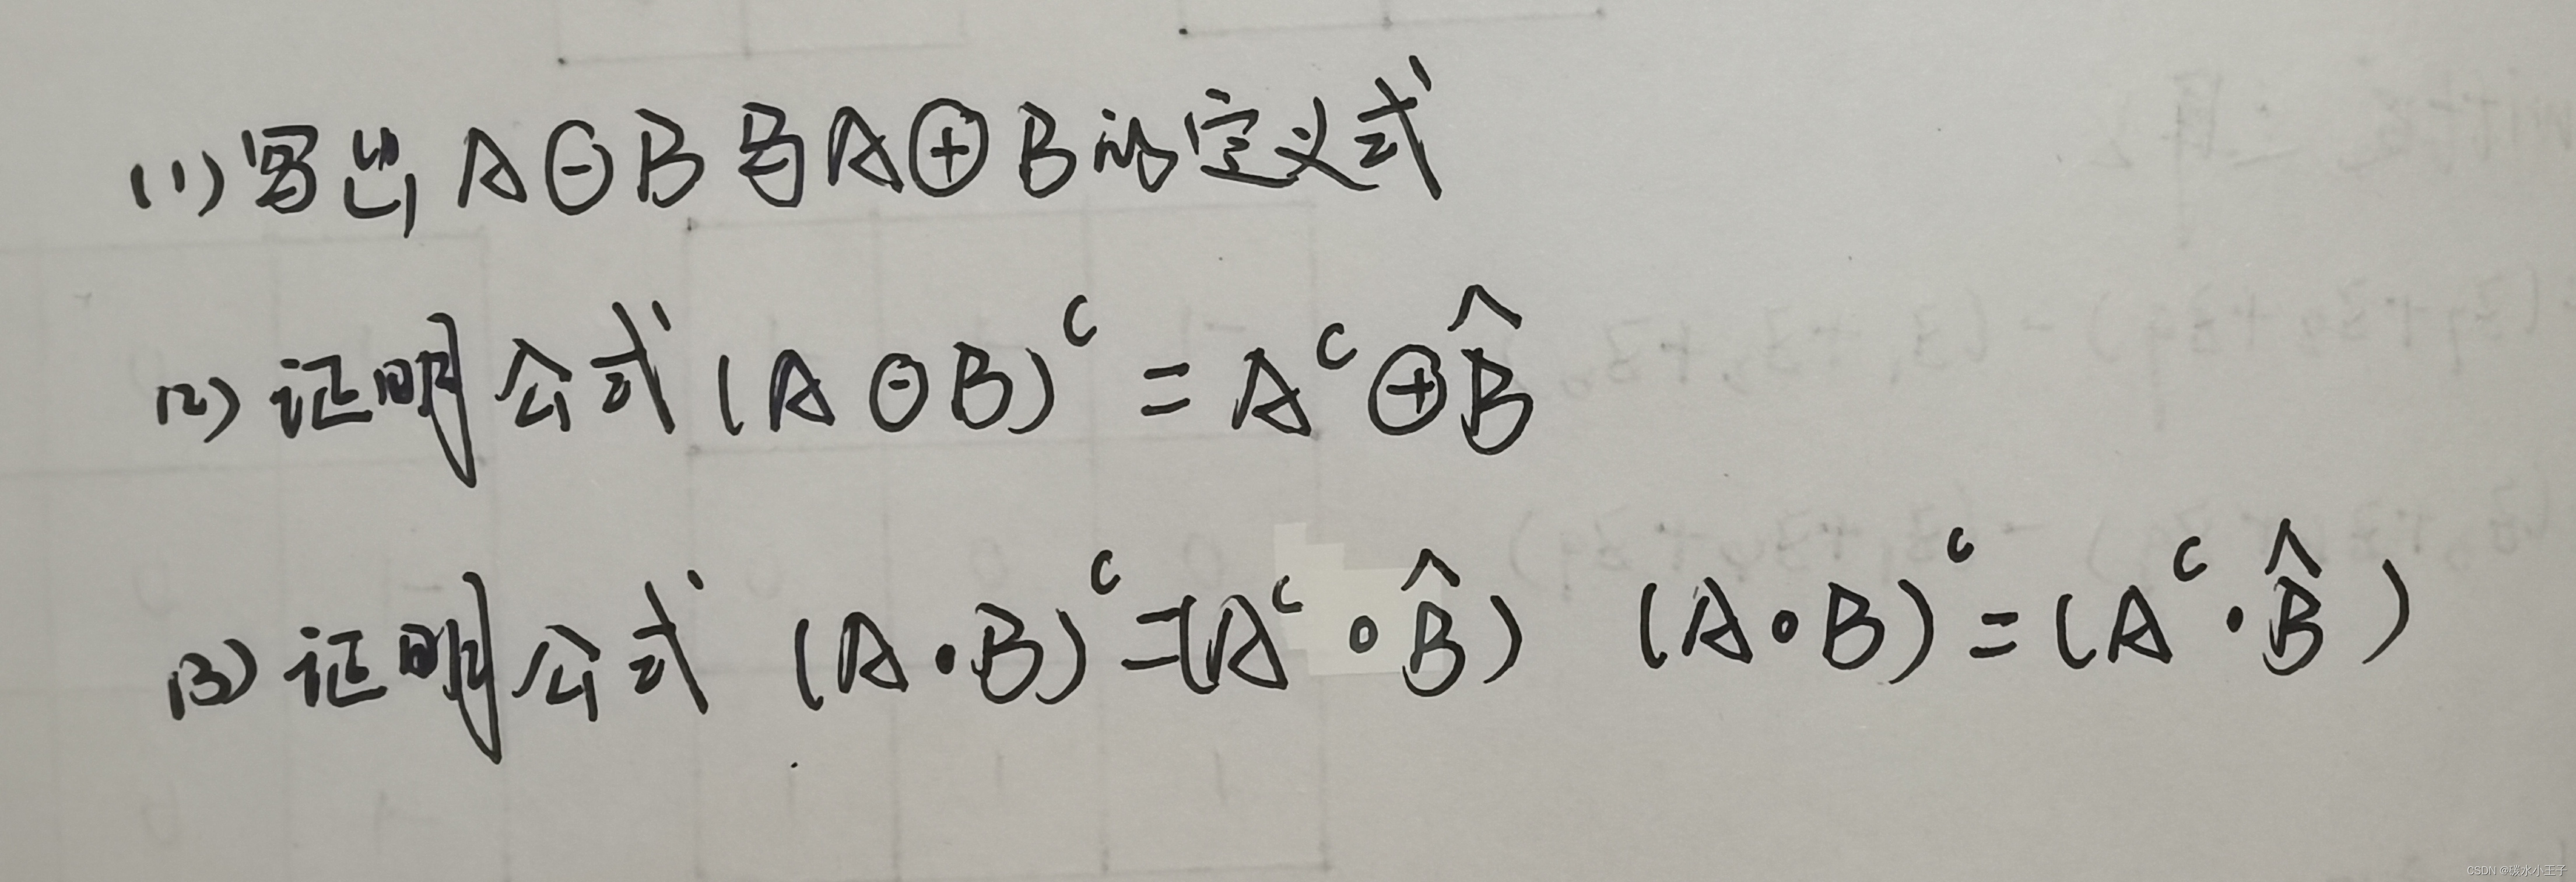 (1) 写出 A⊖B 与 A⊕B 的定义式
(2) 证明公式 (A⊖B)ᶜ = Aᶜ⊕B̂
(3) 证明公式 (A•B)ᶜ=(Aᶜ∘B̂) (A∘B)ᶜ=(Aᶜ•B̂)
CSDN @碳水小王子